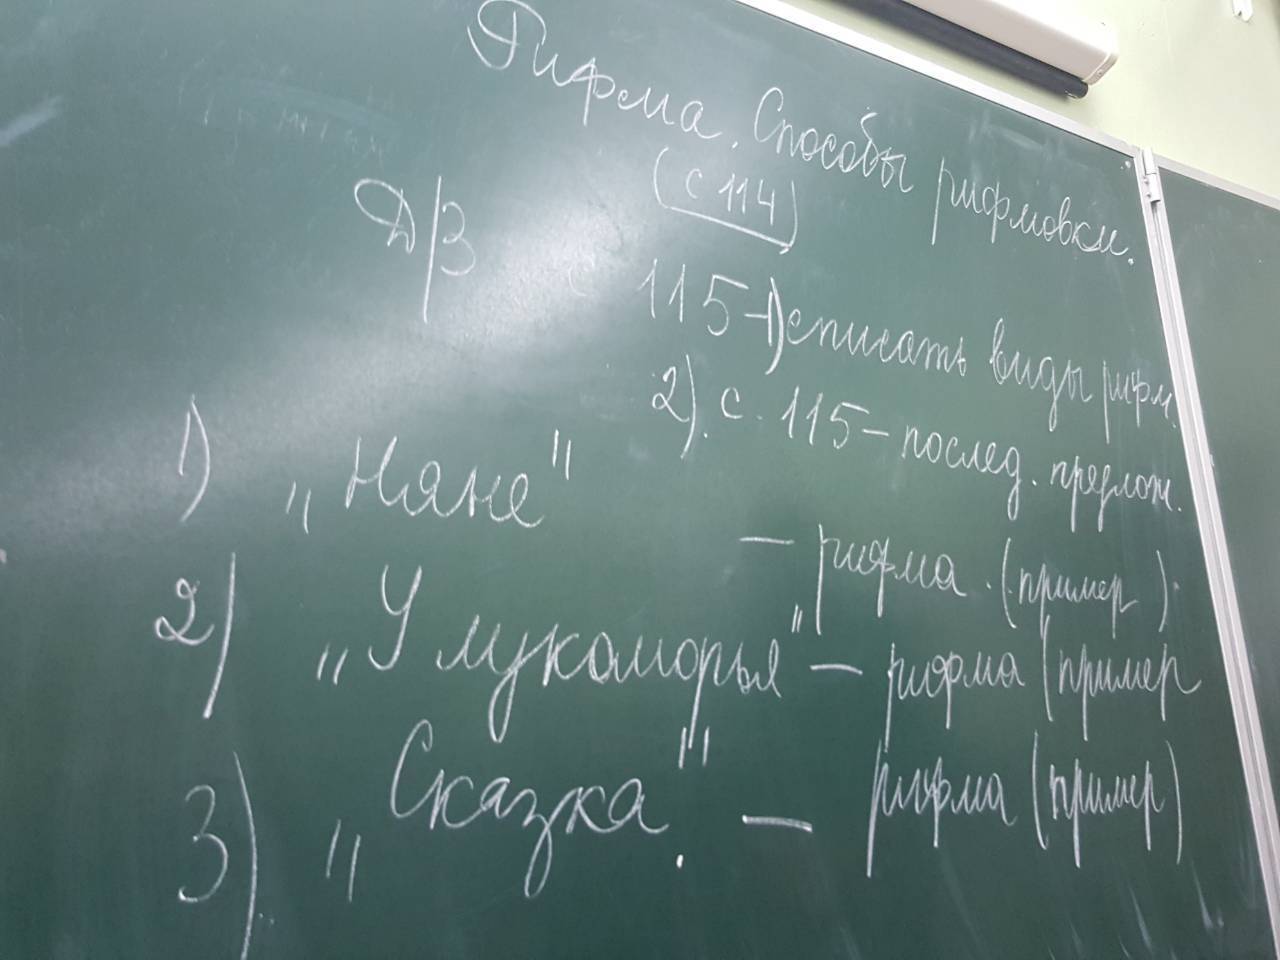 Рифма. Способы рифмовки.
(с 114)
Д/З с 115 - 1) списать виды рифм.
2). с. 115 - послед. предлож.
1) „Няне" - рифма. (пример).
2) „У лукоморья" - рифма (пример
3) „Сказка". - рифма (пример)